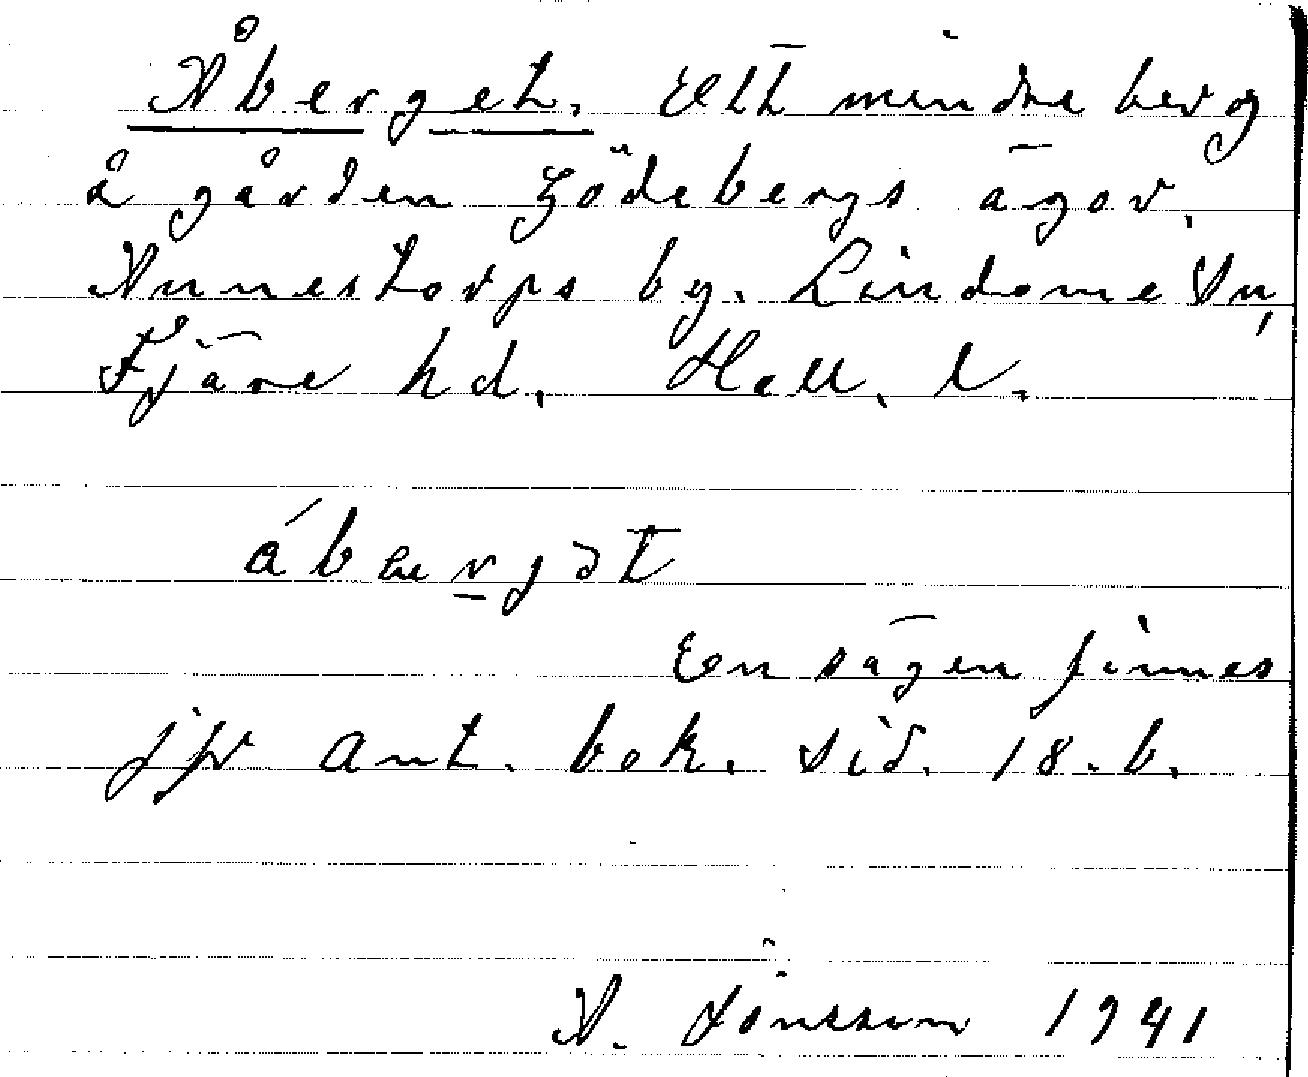 Åberget. Ett mindre berg
å gården Gödebergs ägor.
Annestorps by. Lindome Sn,
Fjäre hd. Hall. l.
åbærgət
En sägen finnes
jfr Ant. bok. sid. 18.b.
A. Jönsson 1941